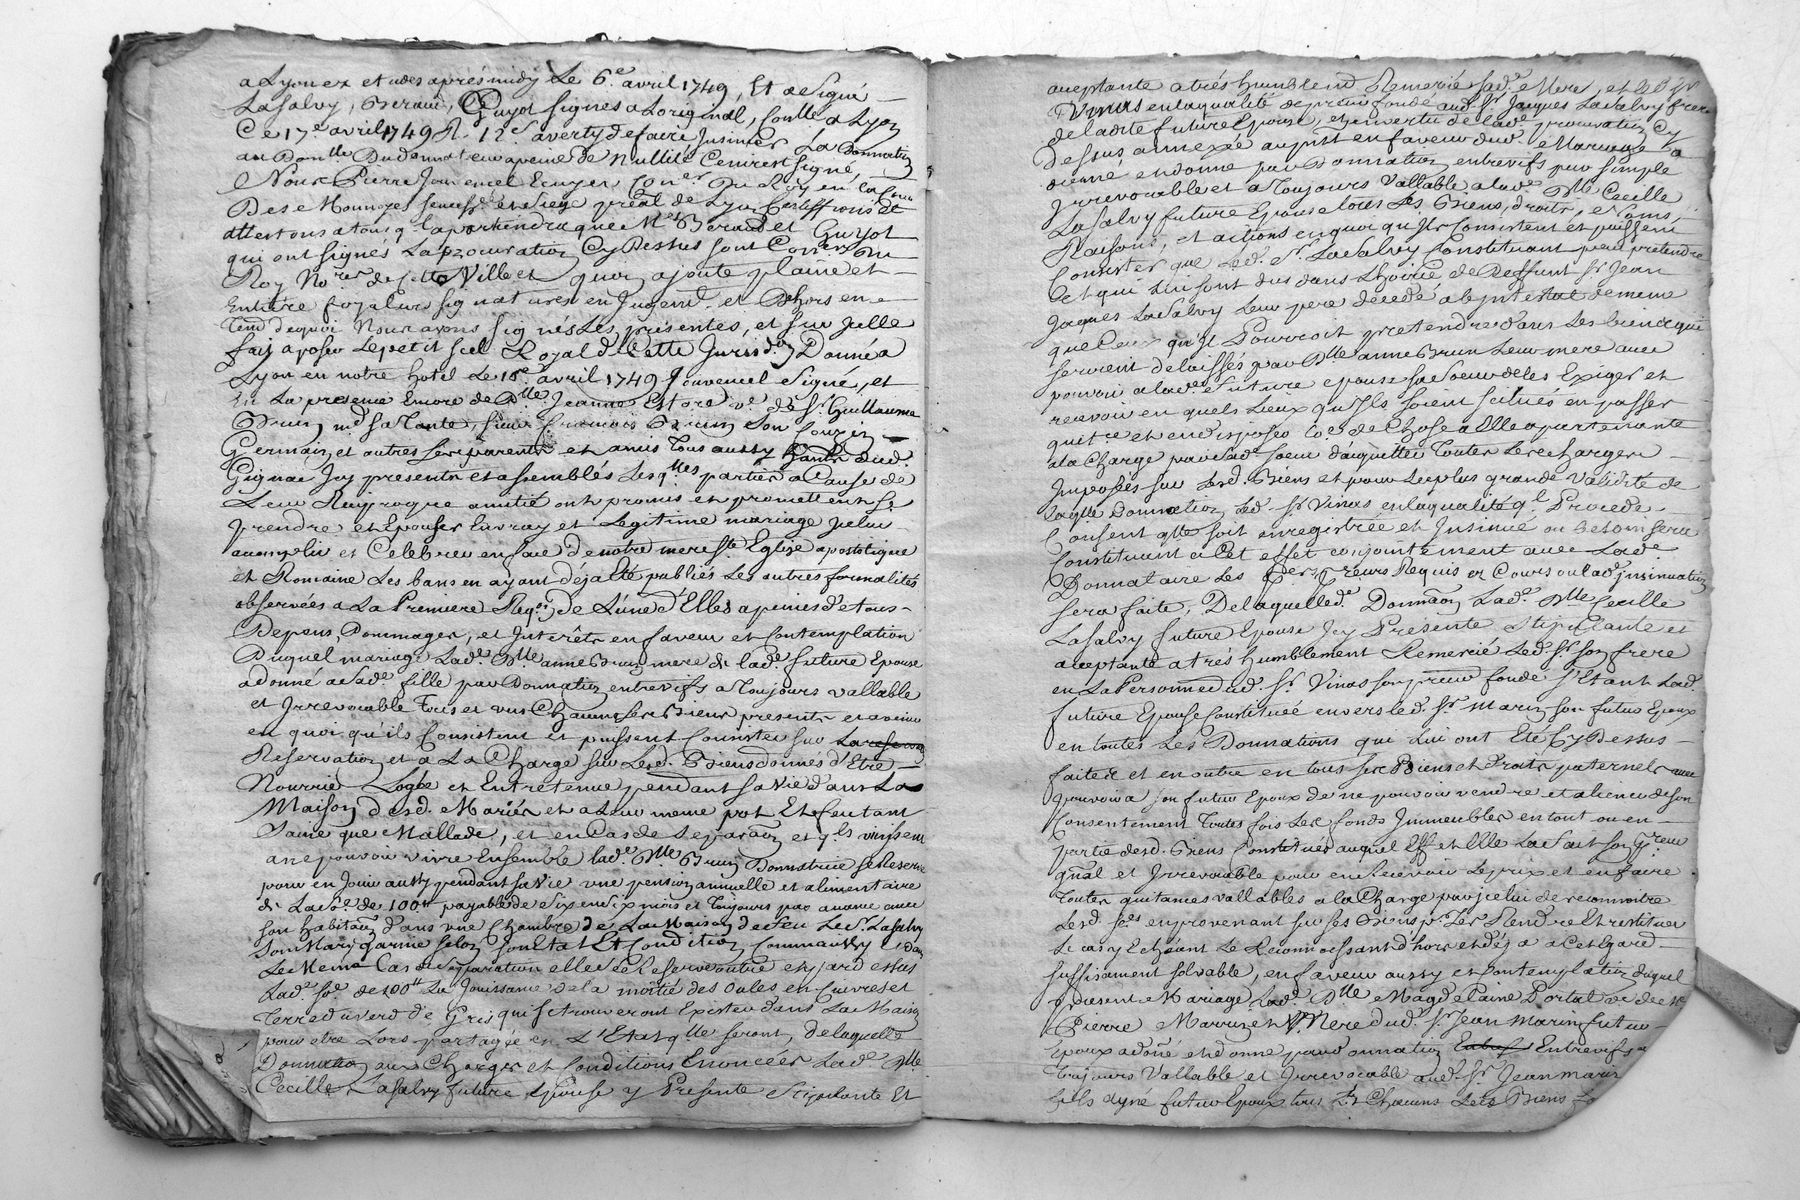 a Lyon ex et udes aprés midy Le 6e. avril 1749, Et a Signé
LaSalvy, Beraud, Guyot signes a Loriginal, Conlle a Lyon
Ce 17e avril 1749 R. 12s. averty de faire Insinuer La Donnation
au Domlle Du donnateur a peine de Nullité Cenirest signé,
Nous Pierre Jouvencel Ecuyer Coner. Du Roy en la Cour
Des Monnoyes senechée. et Siege préal de Lyon Certiffions et
attestons a tous q. lapartiendra que Mes Beraud et Guyot
qui ont signés La procuration Cy Dessus sont Coners. Du
Roy Nores. de Cette Ville et quoy ajoute plaine et
Entiere foy a leurs signatures en Jugemt. et Dehors en
Temd. dequoi Nous avons signés Les présentes, et sur Jcelle
fait aposer Le petit scel Royal de Cette Jurisdon, Donné a
Lyon en notre hotel Le 18e. avril 1749 Jouvencel Signé, et
En La presence Encore de Dlle Jeanne Estore ve. de Sr. Guillaume
Brun md. sa Tante, sieur francois Brun Son Cousin
Germain, et autres ses parents et amis Tous aussy habts dud.
Gignac Jcy presents et assemblés Lesqlles. parties a Cause de
Leur Reciproque amitié ont promis et promettent se
prendre et Epouser En vray et Legitime mariage Jcelui
accomplir et Celebrer en face de notre mere ste Eglise apostolique
et Romaine Les bans en ayant déja Eté publiés Les autres formalités
observées a La Premiere Reqon. de L'une d'Elles a peines de tous
Depens, Dommages, et Interêts en faveur et Contemplation
Duquel mariage Lade. Dlle anne Brun mere de lade. future Epouse
a donné a sade. fille par Donnation entrevifs a Toujours vallable
et Irrevocable Tous et uns Chacuns ses Biens presents et avenir
en quoi qu'ils Consistent et puissent Consister sur La reserva
Reservation et a La Charge sur Lesd. Biens donnés d'Etre
Nourrie Logée et Entretenue pendant sa Vie dans La
Maison desd. Mariés et a Leur meme pot Et feu tant
Saine que Mallade, et en Cas de Separaon et qls vinssent
a ne pouvoir vivre Ensemble lade. Dlle Brun Donnatrice se Reserve
pour en Jouir aussy pendant sa Vie une pension annuelle et alimentaire
de La soe. de 100tt payable de Six en Six mois et Toujours par avance avec
son habitaon dans une Chambre de La Maison de feu Le Sr. LaSalvy
Son Mary garnie selon son Etat Et Condition Comm'aussy Dans
Le Meme Cas de Separation elle se Reserve outre et pardessus
Lade. soe. de 100tt La Jouissance de la moitié des Oules en Cuivre et
Terre du verd de Gris qui se trouveront Exister dans La Maison
pour etre Lors partagée en L'Etat qlle seront, de laquelle
Donnation aux Charges et Conditions Enoncées Lade. Dlle
Cecille LaSalvy future Epouse y Presente Stipulante Et
aceptante a trés humblemd Remercié sade. Mere, et Led. Sr
Vinas en la qualité de preur fondé aud. Sr Jacques LaSalvy frere
de ladite future Epouse, et en vertu de lade. procuration Cy
dessus annexée aussy en faveur dud. Mariage a
donné et donne par Donnation entrevifs pur simple
Irrevocable et a Toujours Vallable a lade. Dlle Cecille
LaSalvy future Epouse tous Ses Biens, droits, Noms,
Raisons, et actions en quoi qu'ils Consistent et puissent
Consister que Led. Sr. LaSalvy Constituant peut pretendre
et qui Lui sont dus dans L'hoirie de Deffunt Sr Jean
Jacques LaSalvy Leur pere decedé ab intestat de meme
que Ceux qu'Jl Pourroit pretendre dans Les biens qui
seroient delaissés par Dlle anne Brun Leur mere avec
pouvoir a lade. future epouse sa Soeur de les Exiger et
recevoir en quels Lieux qu'Jls soient scitués en passer
quitce et en disposer Coe. de Chose a Elle apartenante
a la Charge par lade. soeur d'aquitter Toutes Les charges
Imposés sur lesd. Biens et pour Le plus grande Validité de
laqlle Donnation Led. Sr. Vinas en la qualité ql. Procede
Consent qlle soit enregistrée et Insinué ou besoin sera
Constituant a Cet effet conjointement avec Lade.
Donnataire Les Pers. Preurs Requis es Cours ou lade. insinuation
sera faite; De laquelle de. Donnaon Lade. Dlle Cecille
LaSalvy future Epouse Jcy Presente Stipulante et
aceptante a trés humblement Remercié Led. Sr. son frere
en La Personne dud. Sr. Vinas son preur fondé S'Etant Lad.
future Epouse Constituée envers led. Sr. Marin son futur Epoux
en toutes Les Donnations qui Lui ont Eté Cy Dessus
faites et en outre en tous ses Biens et droits paternels avec
pouvoir a son futur Epoux de ne pouvoir vendre et aliener de son
Consentement Toutes fois Les fonds Immeubles en tout ou en
partie desd. Biens Constitués auquel Eff et Elle La fait son Preur
gnal et Irrevocable pour en Recevoir Le prix et en faire
Toutes quitances vallables a la Charge par Jcelui de reconnoitre
Lesd. Soes. en provenant sur ses Biens pr. Les Rendre Et restituer
Le cas y Echéant Le Reconnoissant d'hors et déja a Cet Egard
suffisament solvable, en faveur aussy et Contemplation duquel
present Mariage Lade. Dlle Magdelaine Portal ve de Me
Pierre Marin et Mere dud. Sr. Jean Marin futur
Epoux a doné et donne par donnation Entref Entrevifs a
Toujours Vallable et Irrevocable aud. Sr. Jean Marin
fils ayné futur Epoux tous Et Chacuns Ses Biens